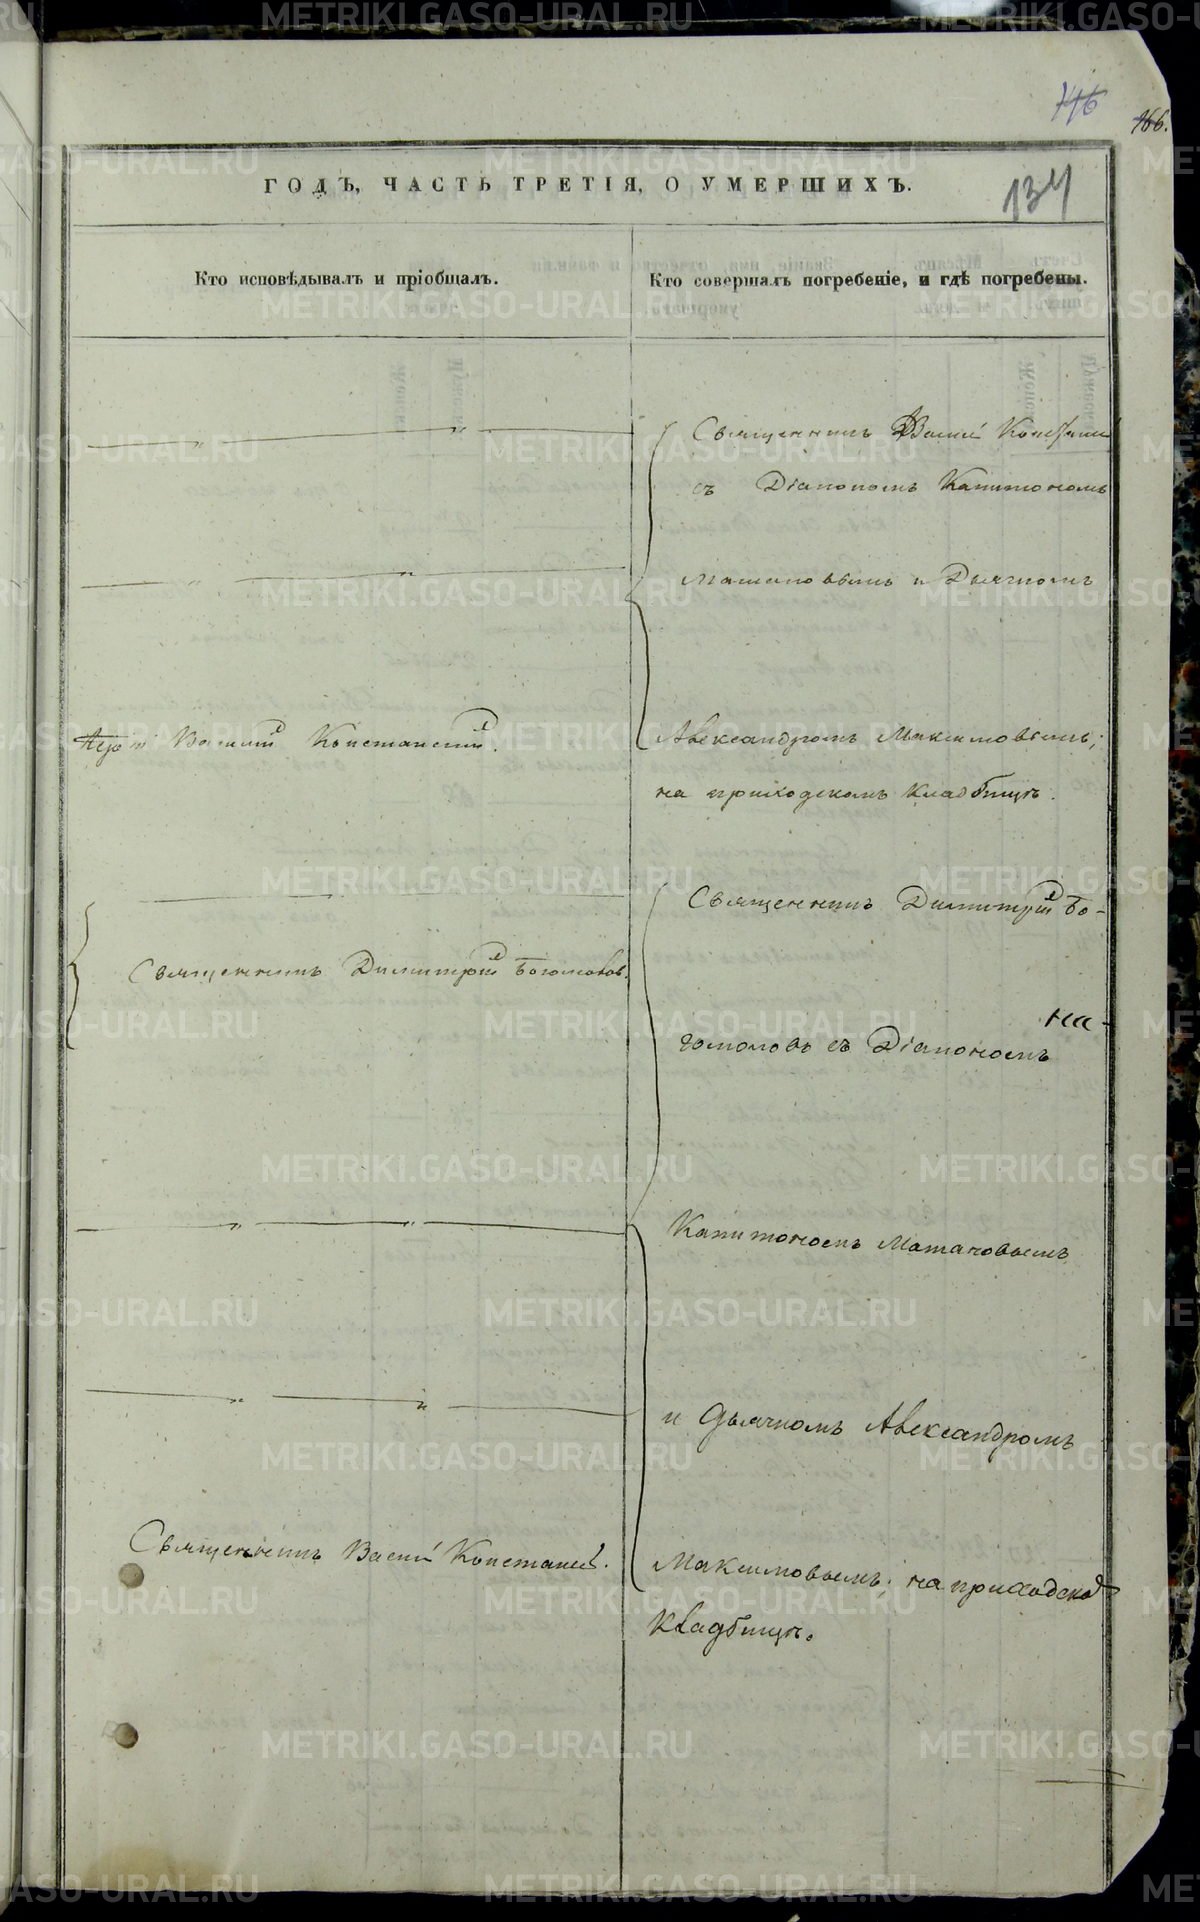 746
166.
134
ГОДЪ, ЧАСТЬ ТРЕТІЯ, О УМЕРШИХЪ.
Кто исповѣдывалъ и пріобщалъ.
Кто совершалъ погребеніе, и гдѣ погребены.
Священникъ Васил Констанс
съ Діакономъ Капитономъ
Матановымъ и Дьячкомъ
Александромъ Максимовымъ;
на приходскомъ кладбищѣ.
Василій Констанскій.
Священникъ Димитрій Бо-
Священникъ Димитрій Богомоловъ.
на-
гомоловъ съ Діакономъ
Капитономъ Матановымъ
и Дьячкомъ Александромъ
Священникъ Васил Констанс.
Максимовымъ; на приходско
кладбищѣ.
METRIKI.GASO-URAL.RU